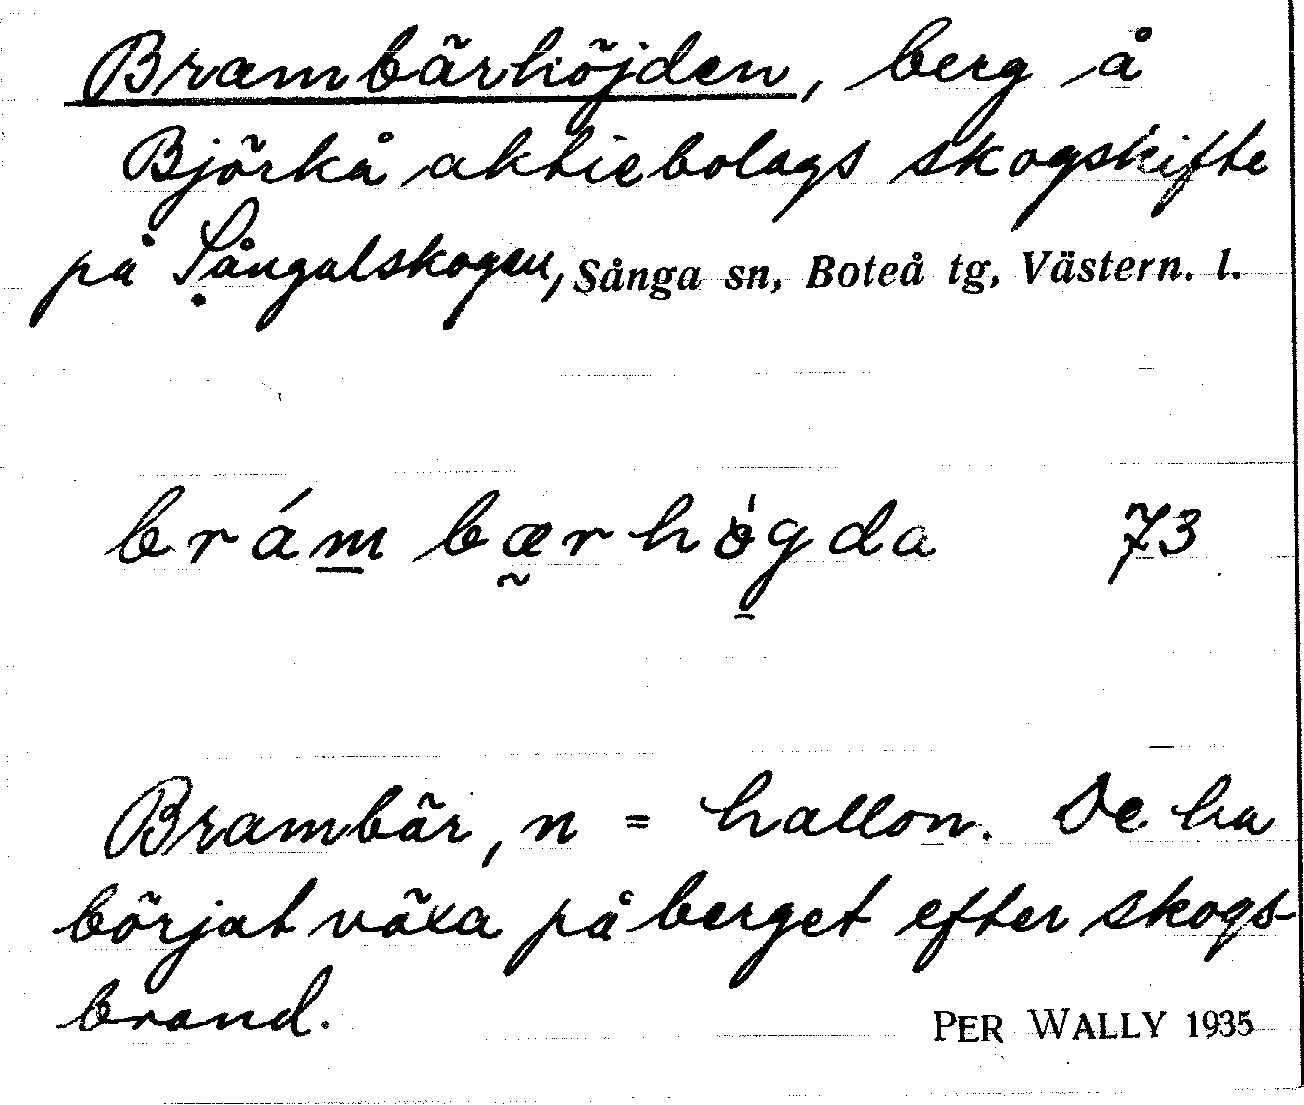 Brambärhöjden, berg å
Björkå aktiebolags skogskifte
på Sångalskogen, Sånga sn, Boteå tg, Västern. l.
brám bærhögda 73
Brambär, n = hallon. De ha
börjat växa på berget efter skogs-
brand.
PER WALLY 1935